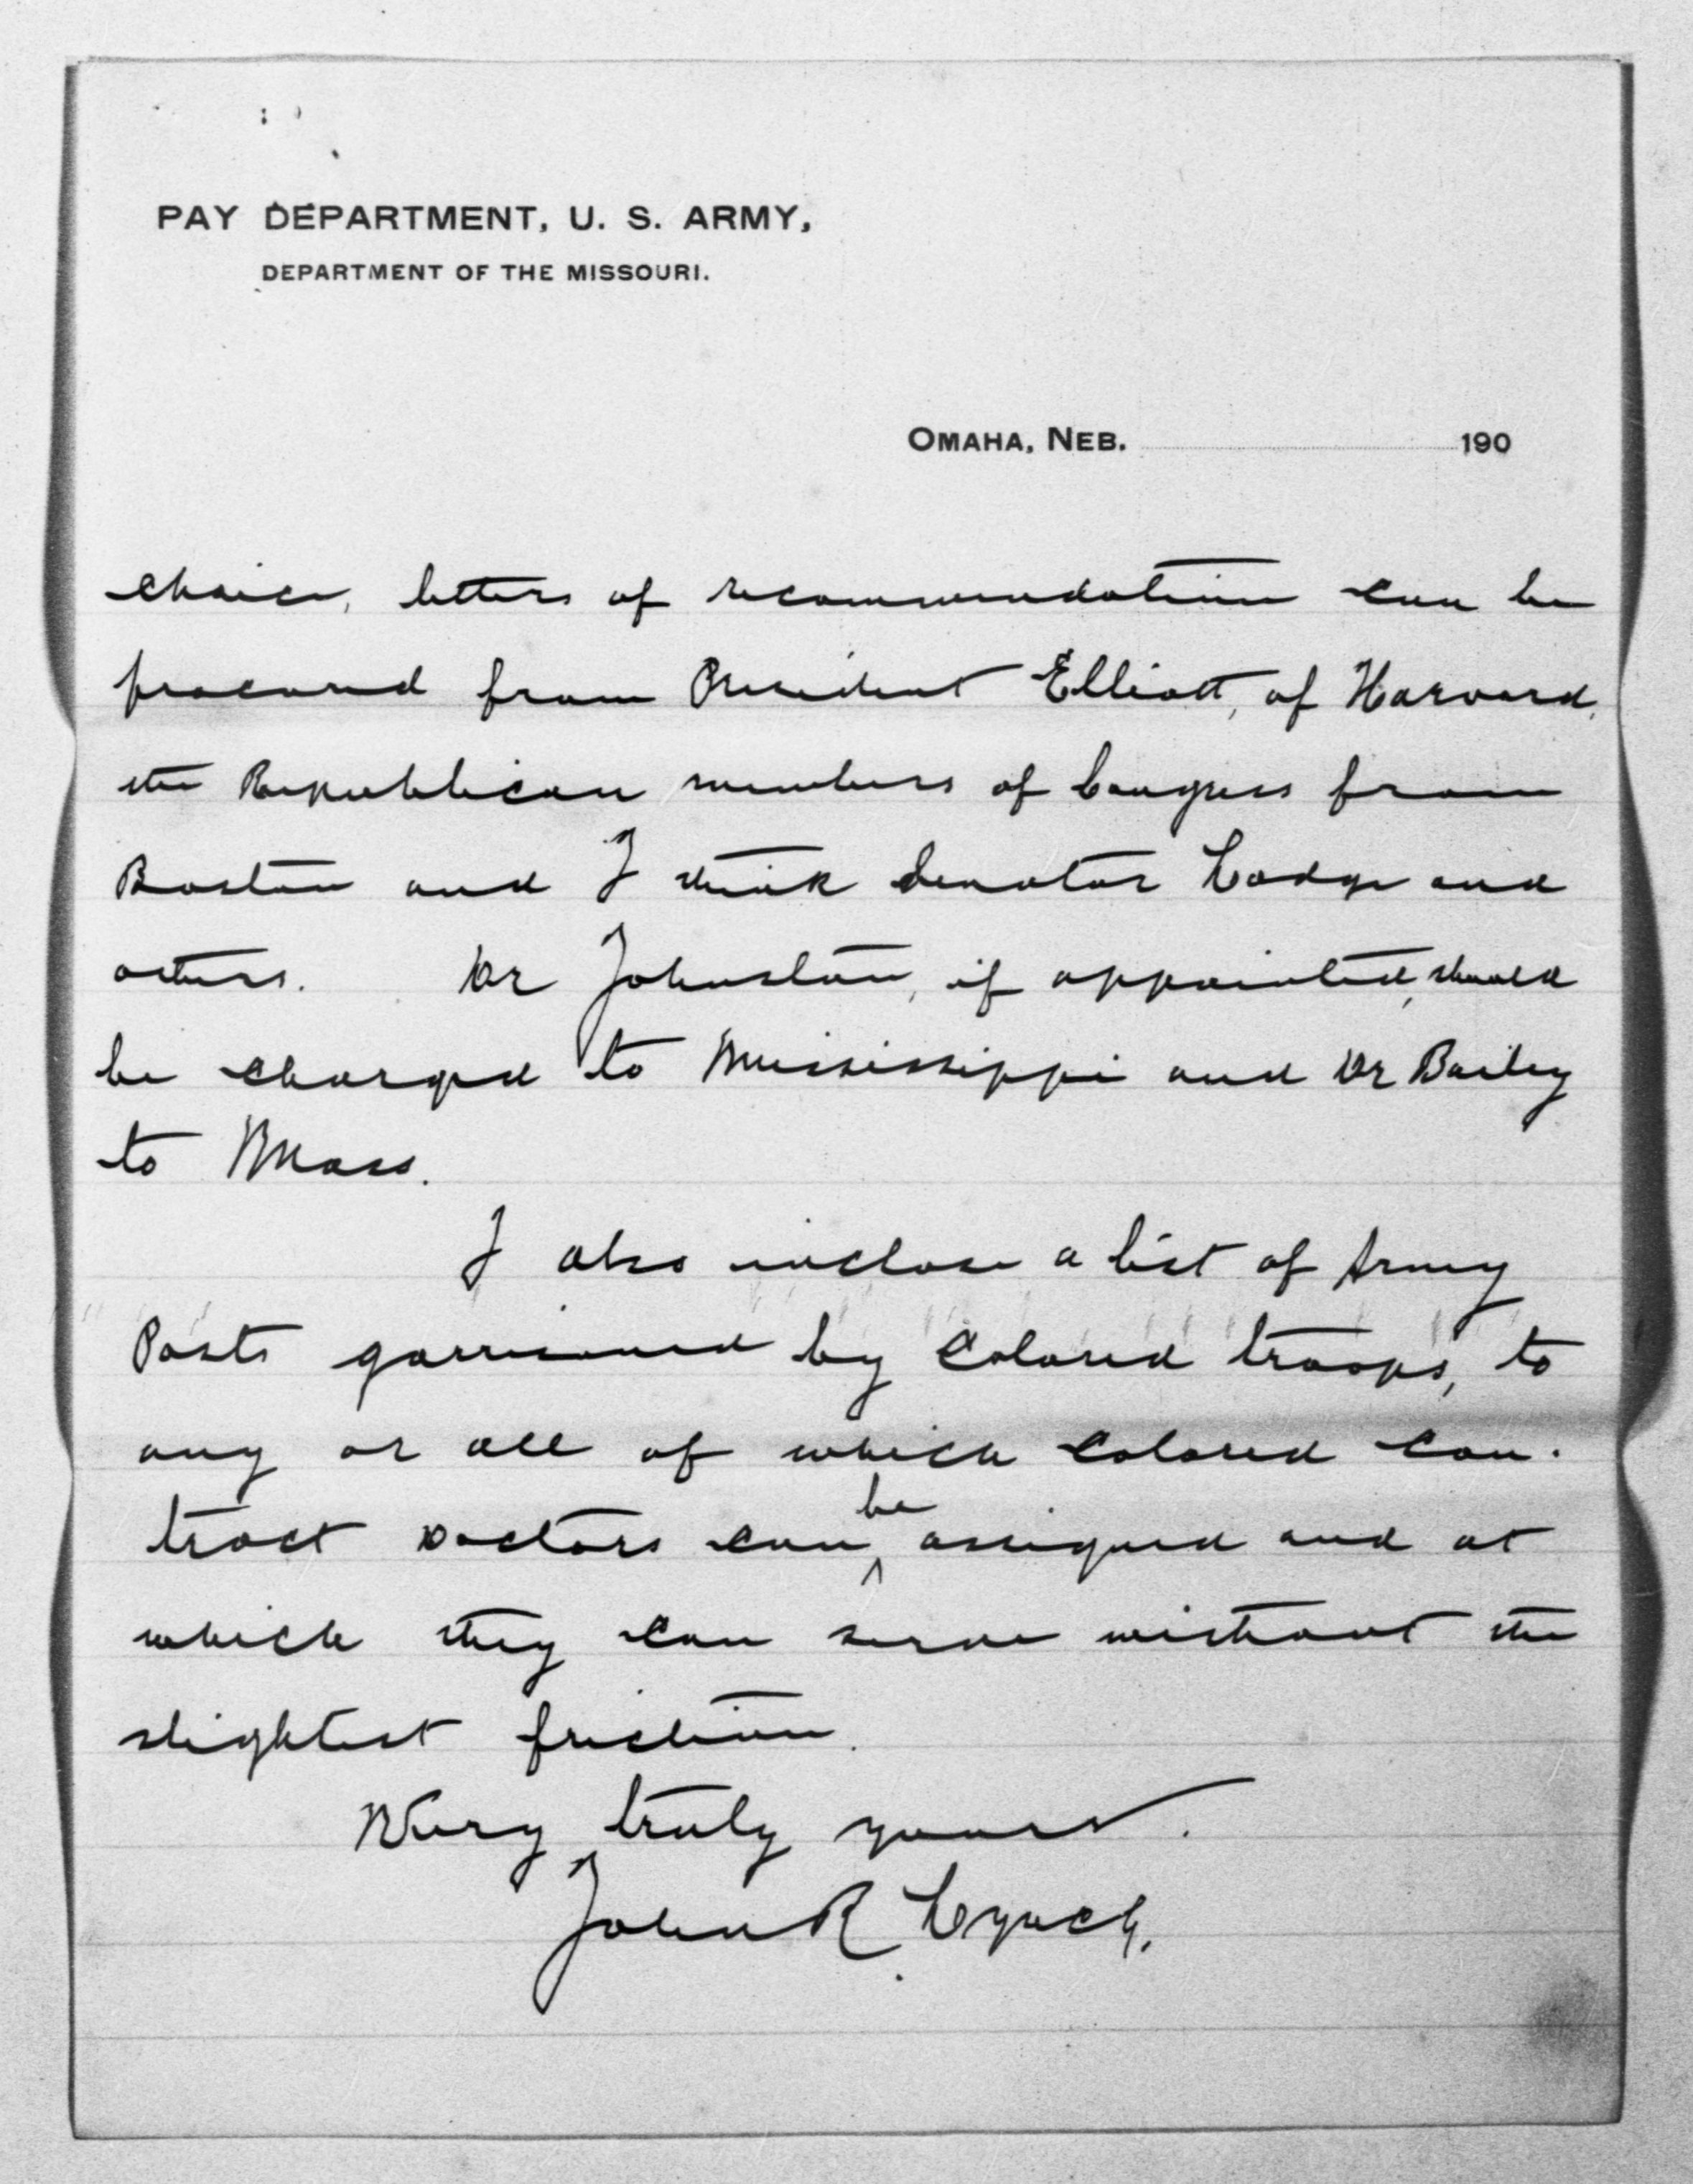 PAY DEPARTMENT, U. S. ARMY,
DEPARTMENT OF THE MISSOURI.
OMAHA, NEB. 190
choice, letters of recommendation can be
procured from President Elliott, of Harvard,
the Republican members of Congress from
Boston and I think Senator Lodge and
others. Dr Johnston, if appointed, should
be charged to Mississippi and Dr Bailey
to Mass.
I also inclose a list of Army
Posts garrisoned by Colored troops, to
any or all of which Colored Con-
tract Doctors can be assigned and at
which they can serve without the
slightest friction.
Very truly yours.
John R. Lynch.